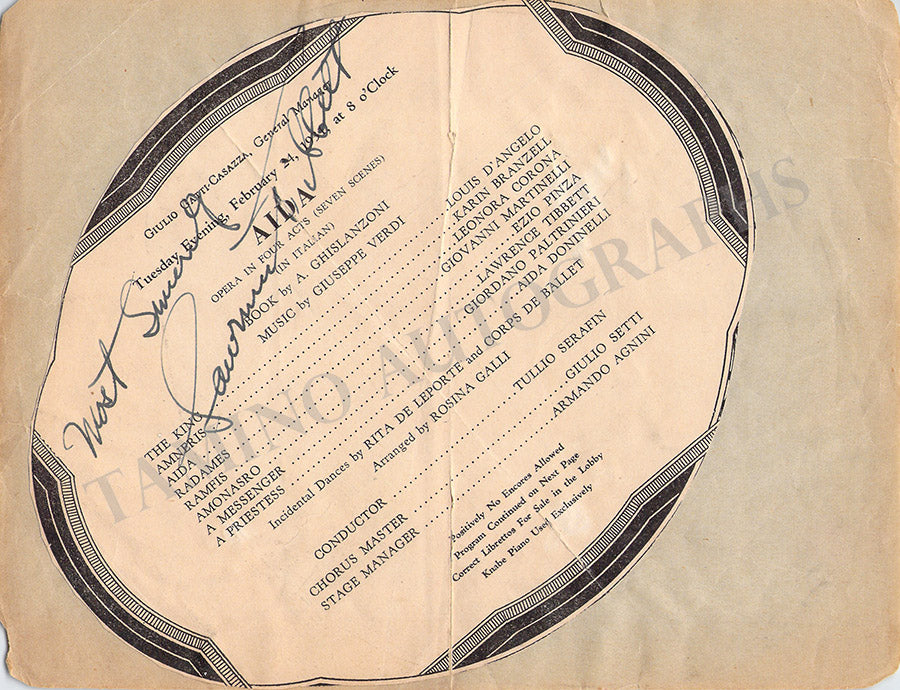 GIULIO GATTI-CASAZZA, General Manager
Tuesday Evening, February 24, at 8 o'Clock
AIDA
OPERA IN FOUR ACTS (SEVEN SCENES)
(IN ITALIAN)
BOOK by A. GHISLANZONI
MUSIC by GIUSEPPE VERDI
THE KING LOUIS D'ANGELO
AMNERIS KARIN BRANZELL
AIDA LEONORA CORONA
RADAMES GIOVANNI MARTINELLI
RAMFIS EZIO PINZA
AMONASRO LAWRENCE TIBBETT
A MESSENGER GIORDANO PALTRINIERI
A PRIESTESS AIDA DONINELLI
Incidental Dances by RITA DE LEPORTE and CORPS DE BALLET
Arranged by ROSINA GALLI
CONDUCTOR TULLIO SERAFIN
CHORUS MASTER GIULIO SETTI
STAGE MANAGER ARMANDO AGNINI
Positively No Encores Allowed
Program Continued on Next Page
Correct Librettos For Sale in the Lobby
Knabe Piano Used Exclusively
Most Sincerely
Lawrence Tibbett
TAMINO AUTOGRAPHS